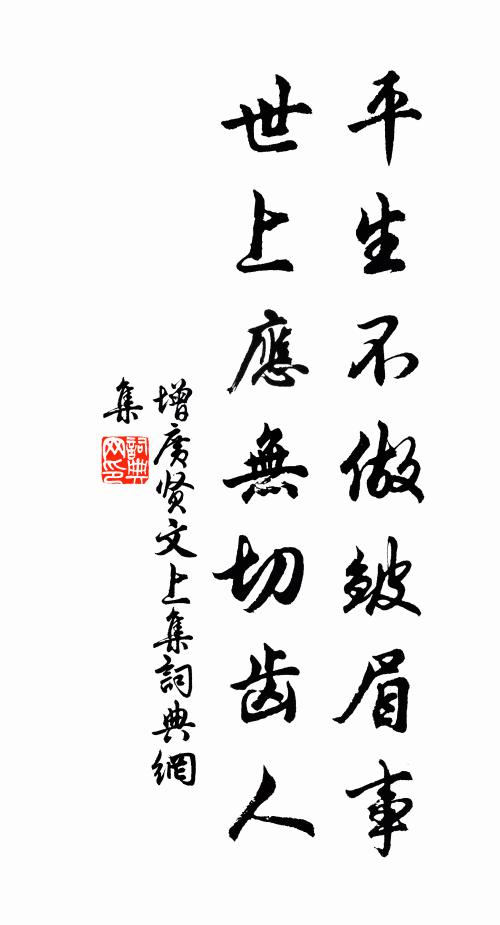 平生不做皱眉事
世上應無切齿人
增广贤文上集詞典網
集
詞典网印